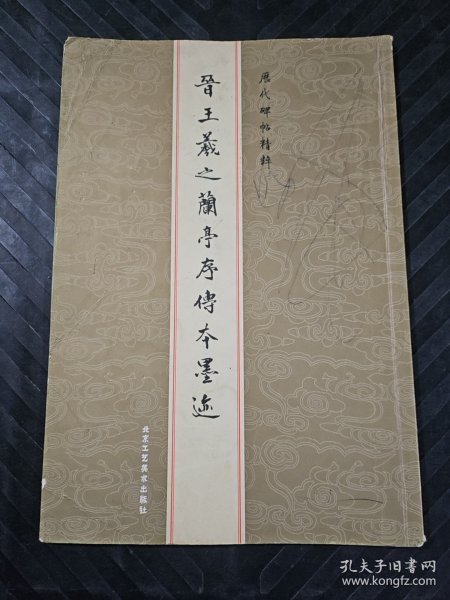 歷代碑帖精粹
晉王羲之蘭亭序傳本墨迹
北京工艺美术出版社
孔夫子旧书网
www.kongfz.com